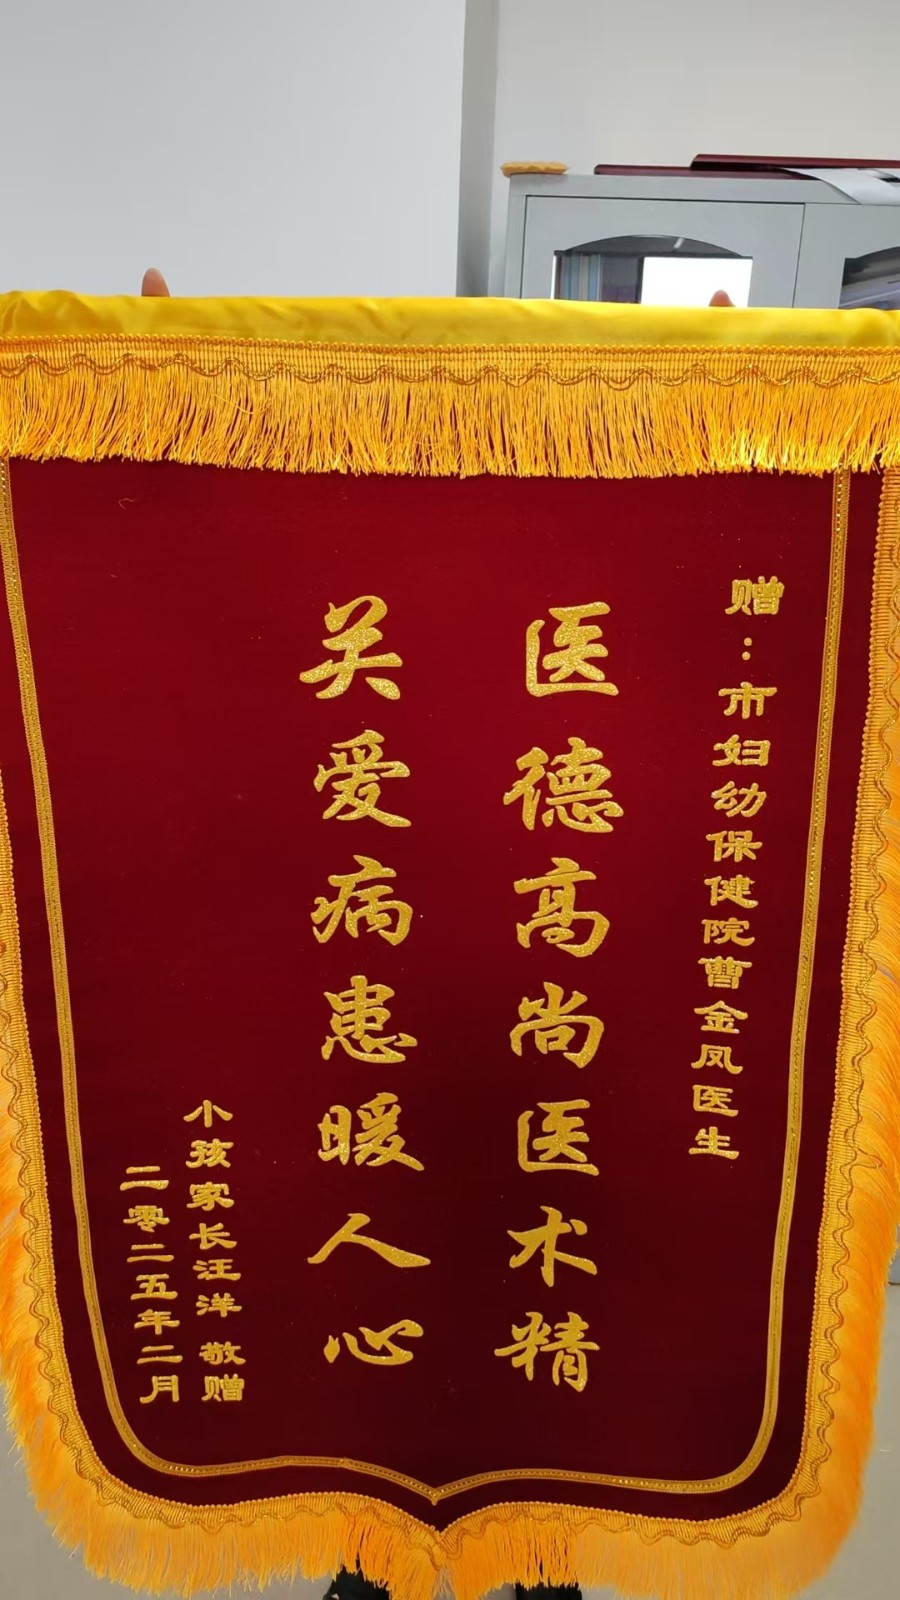 赠：市妇幼保健院曹金凤医生
医德高尚医术精
关爱病患暖人心
小孩家长汪洋 敬赠
二零二五年二月